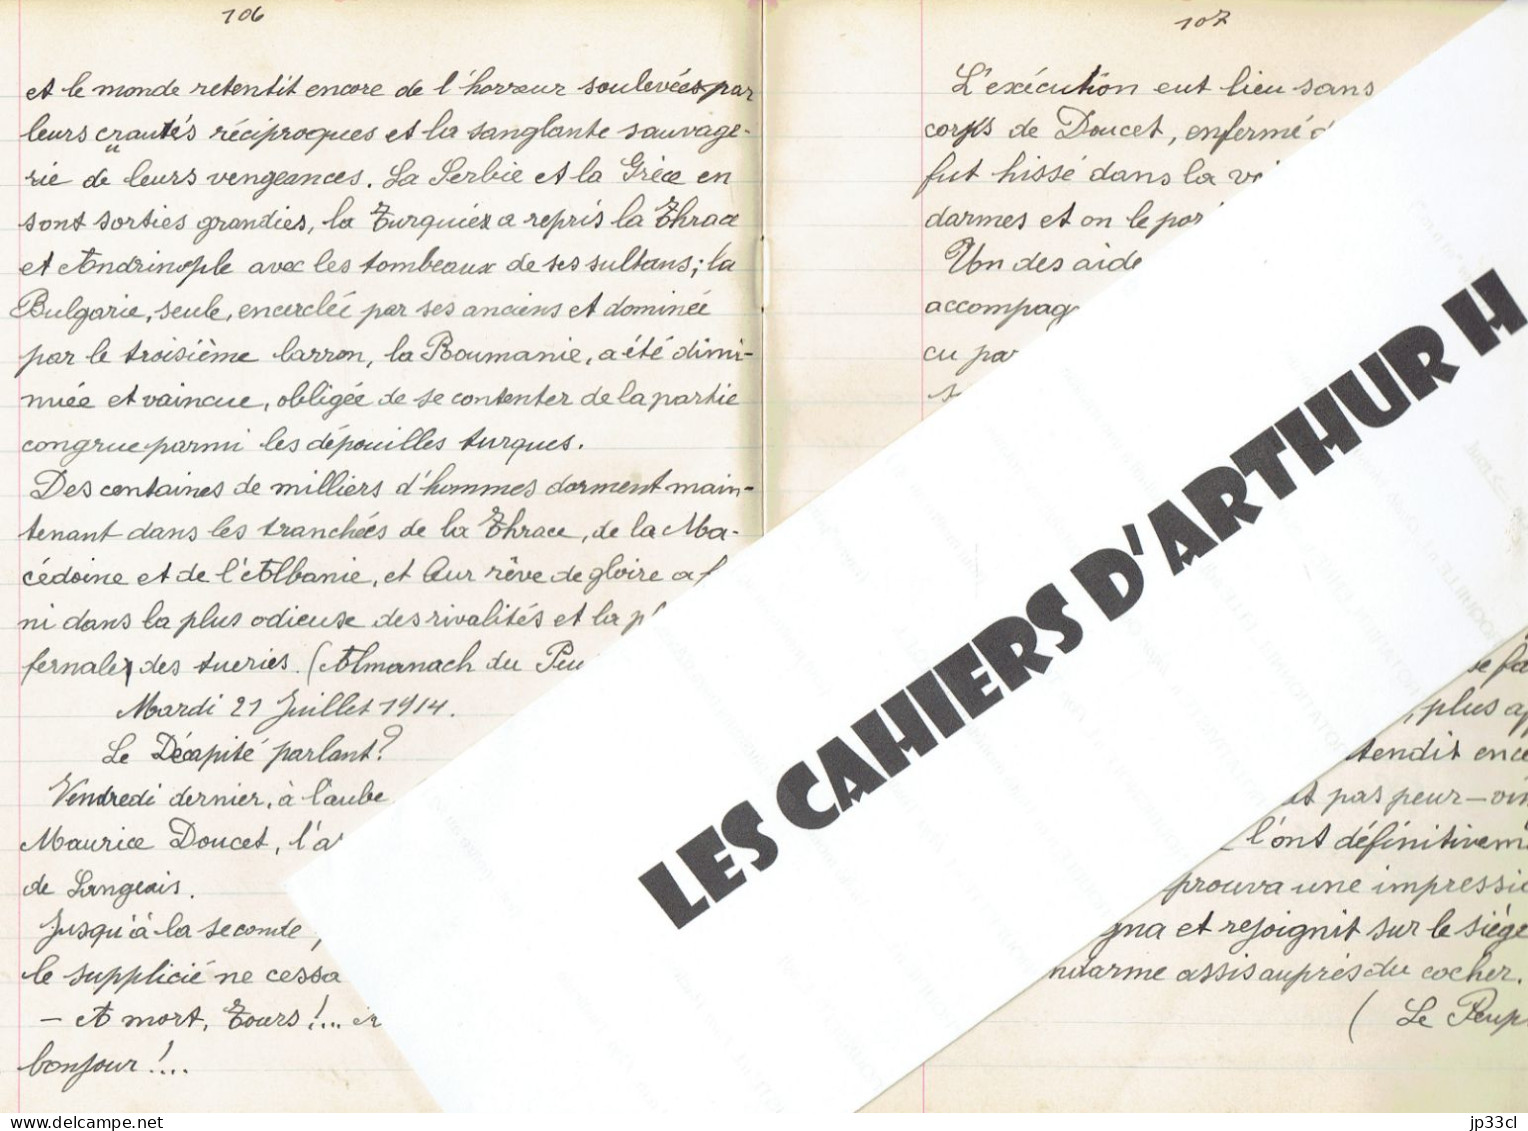 106
et le monde retentit encore de l'horreur soulevées par
leurs crautés réciproques et la sanglante sauvage-
rie de leurs vengeances. La Serbie et la Grèce en
sont sorties grandies, la Turquie a repris la Thrace
et Andrinople avec les tombeaux de ses sultans; la
Bulgarie, seule, encerclée par ses anciens et dominée
par le troisième larron, la Roumanie, a été dimi-
nuée et vaincue, obligée de se contenter de la partie
congrue parmi les dépouilles turques.
Des centaines de milliers d'hommes dorment main-
tenant dans les tranchées de la Thrace, de la Ma-
cédoine et de l'Albanie, et leur rêve de gloire a f
ni dans la plus odieuse des rivalités et la pl
fernales des tueries. (Almanach du Peu
Mardi 21 Juillet 1914.
Le Décapité parlant?
Vendredi dernier, à l'aube
Maurice Doucet, l'as
de Langeais.
Jusqu'à la seconde,
le supplicié ne cessa
- A mort, Tours!...
bonjour!...
107
L'exécution eut lieu sans
corps de Doucet, enfermé d
fut hissé dans la vo
darmes et on le por
Un des aide
accompag
cu par
se fa
, plus ap
tendit enco
pas peur - oin
l'ont définitivem
prouva une impressio
gna et rejoignit sur le siège
ndarme assis auprès du cocher.
( Le Peup
LES CAHIERS D'ARTHUR H
jp33cl